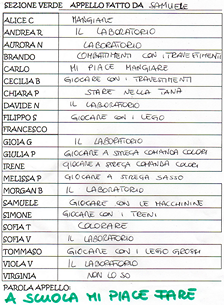 SEZIONE VERDE APPELLO FATTO DA SAMUELE
ALICE C MANGIARE
ANDREA R IL LABORATORIO
AURORA N LABORATORIO
BRANDO COMBATTIMENTI CON I TRAVESTIMENTI
CARLO MI PIACE MANGIARE
CECILIA B GIOCARE CON I TRAVESTIMENTI
CHIARA P STARE NELLA TANA
DAVIDE N IL LABORATORIO
FILIPPO S GIOCARE CON I LEGO
FRANCESCO
GIOIA G IL LABORATORIO
GIULIA P GIOCARE A STREGA COMANDA COLORI
IRENE GIOCARE A STREGA COMANDA COLORI
MELISSA P GIOCARE A STREGA SASSO
MORGAN B IL LABORATORIO
SAMUELE GIOCARE CON LE MACCHININE
SIMONE GIOCARE CON I TRENI
SOFIA T COLORARE
SOFIA V IL LABORATORIO
TOMMASO GIOCARE CON I LEGO GROSSI
VIOLA V IL LABORATORIO
VIRGINIA NON LO SO
PAROLA APPELLO:
A SCUOLA MI PIACE FARE